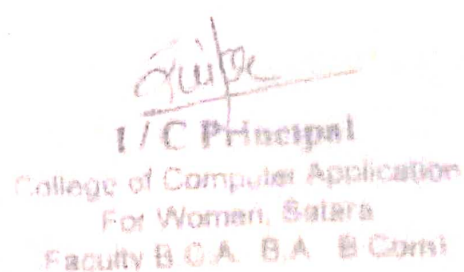 I/C Principal
College of Computer Application
For Women, Satara
Faculty B.C.A. B.A. B.Com